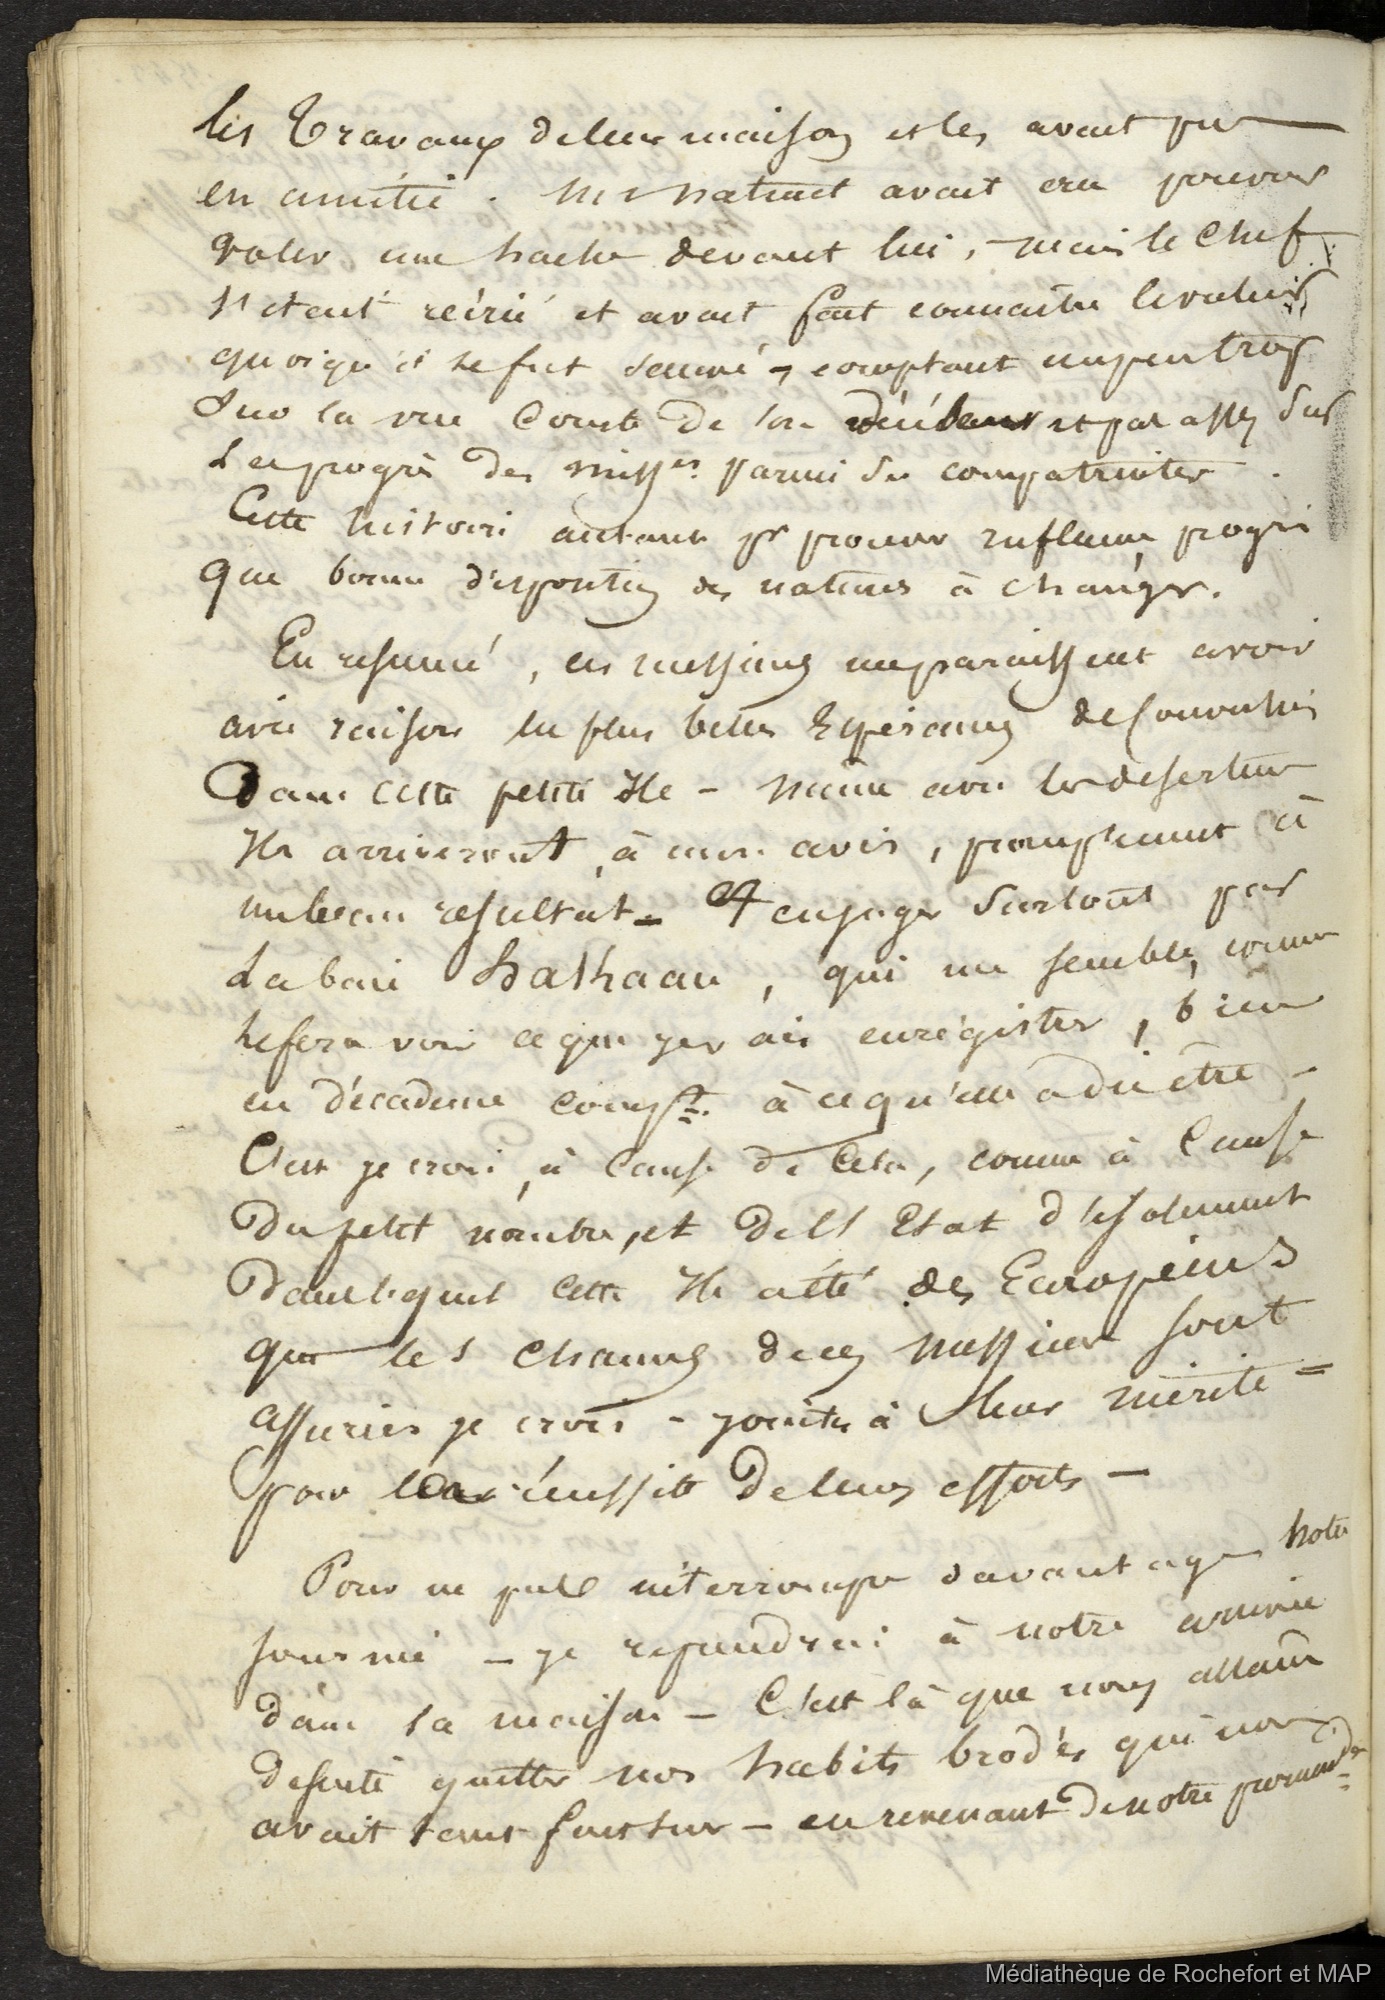 les travaux de leur maison et les avait pris
en amitié. Un Naturel avait cru pouvoir
voler une hache devant lui, mais le chef
s'etait récrié et avait fait connaitre le voleur
quoiqu'il se fut sauvé, comptant un peu trop
sur la vue courte de son et pas assez sur
les progrès des miss.res parmi ses compatriotes.
Cette histoire autant pr prouver progrès
que bonne disposition des natures à changer.
En resumé, ces messieurs me paraissent avoir
avec raison les plus belles Espérances de
Dans cette petite Ile - même avec les deserteurs
Ils arriveront, à mon avis, promptement à
un beau resultat - Et en juger surtout par
La baie , qui me semble, comme
le fera voir ce que j'en ai enrégistrer, bien
en décadence comp.t à ce qu'elle a dû être -
C'est je crois, à cause de cela, comme à cause
Du petit nombre, et de l'Etat d'isolement
Dans lequel cette Ile a été des Européens
que les chances de ces messieurs sont
assurées je crois - jointes à leur mérite -
pour la réussite de leurs efforts -
Pour ne pas interrompre davantage notre
journée - je reprendrai à notre arrivée
dans la maison - C'est là que nous allames
de suite quitter nos habits brodés qui nous
avait tant fait suer - en revenant de notre promenade